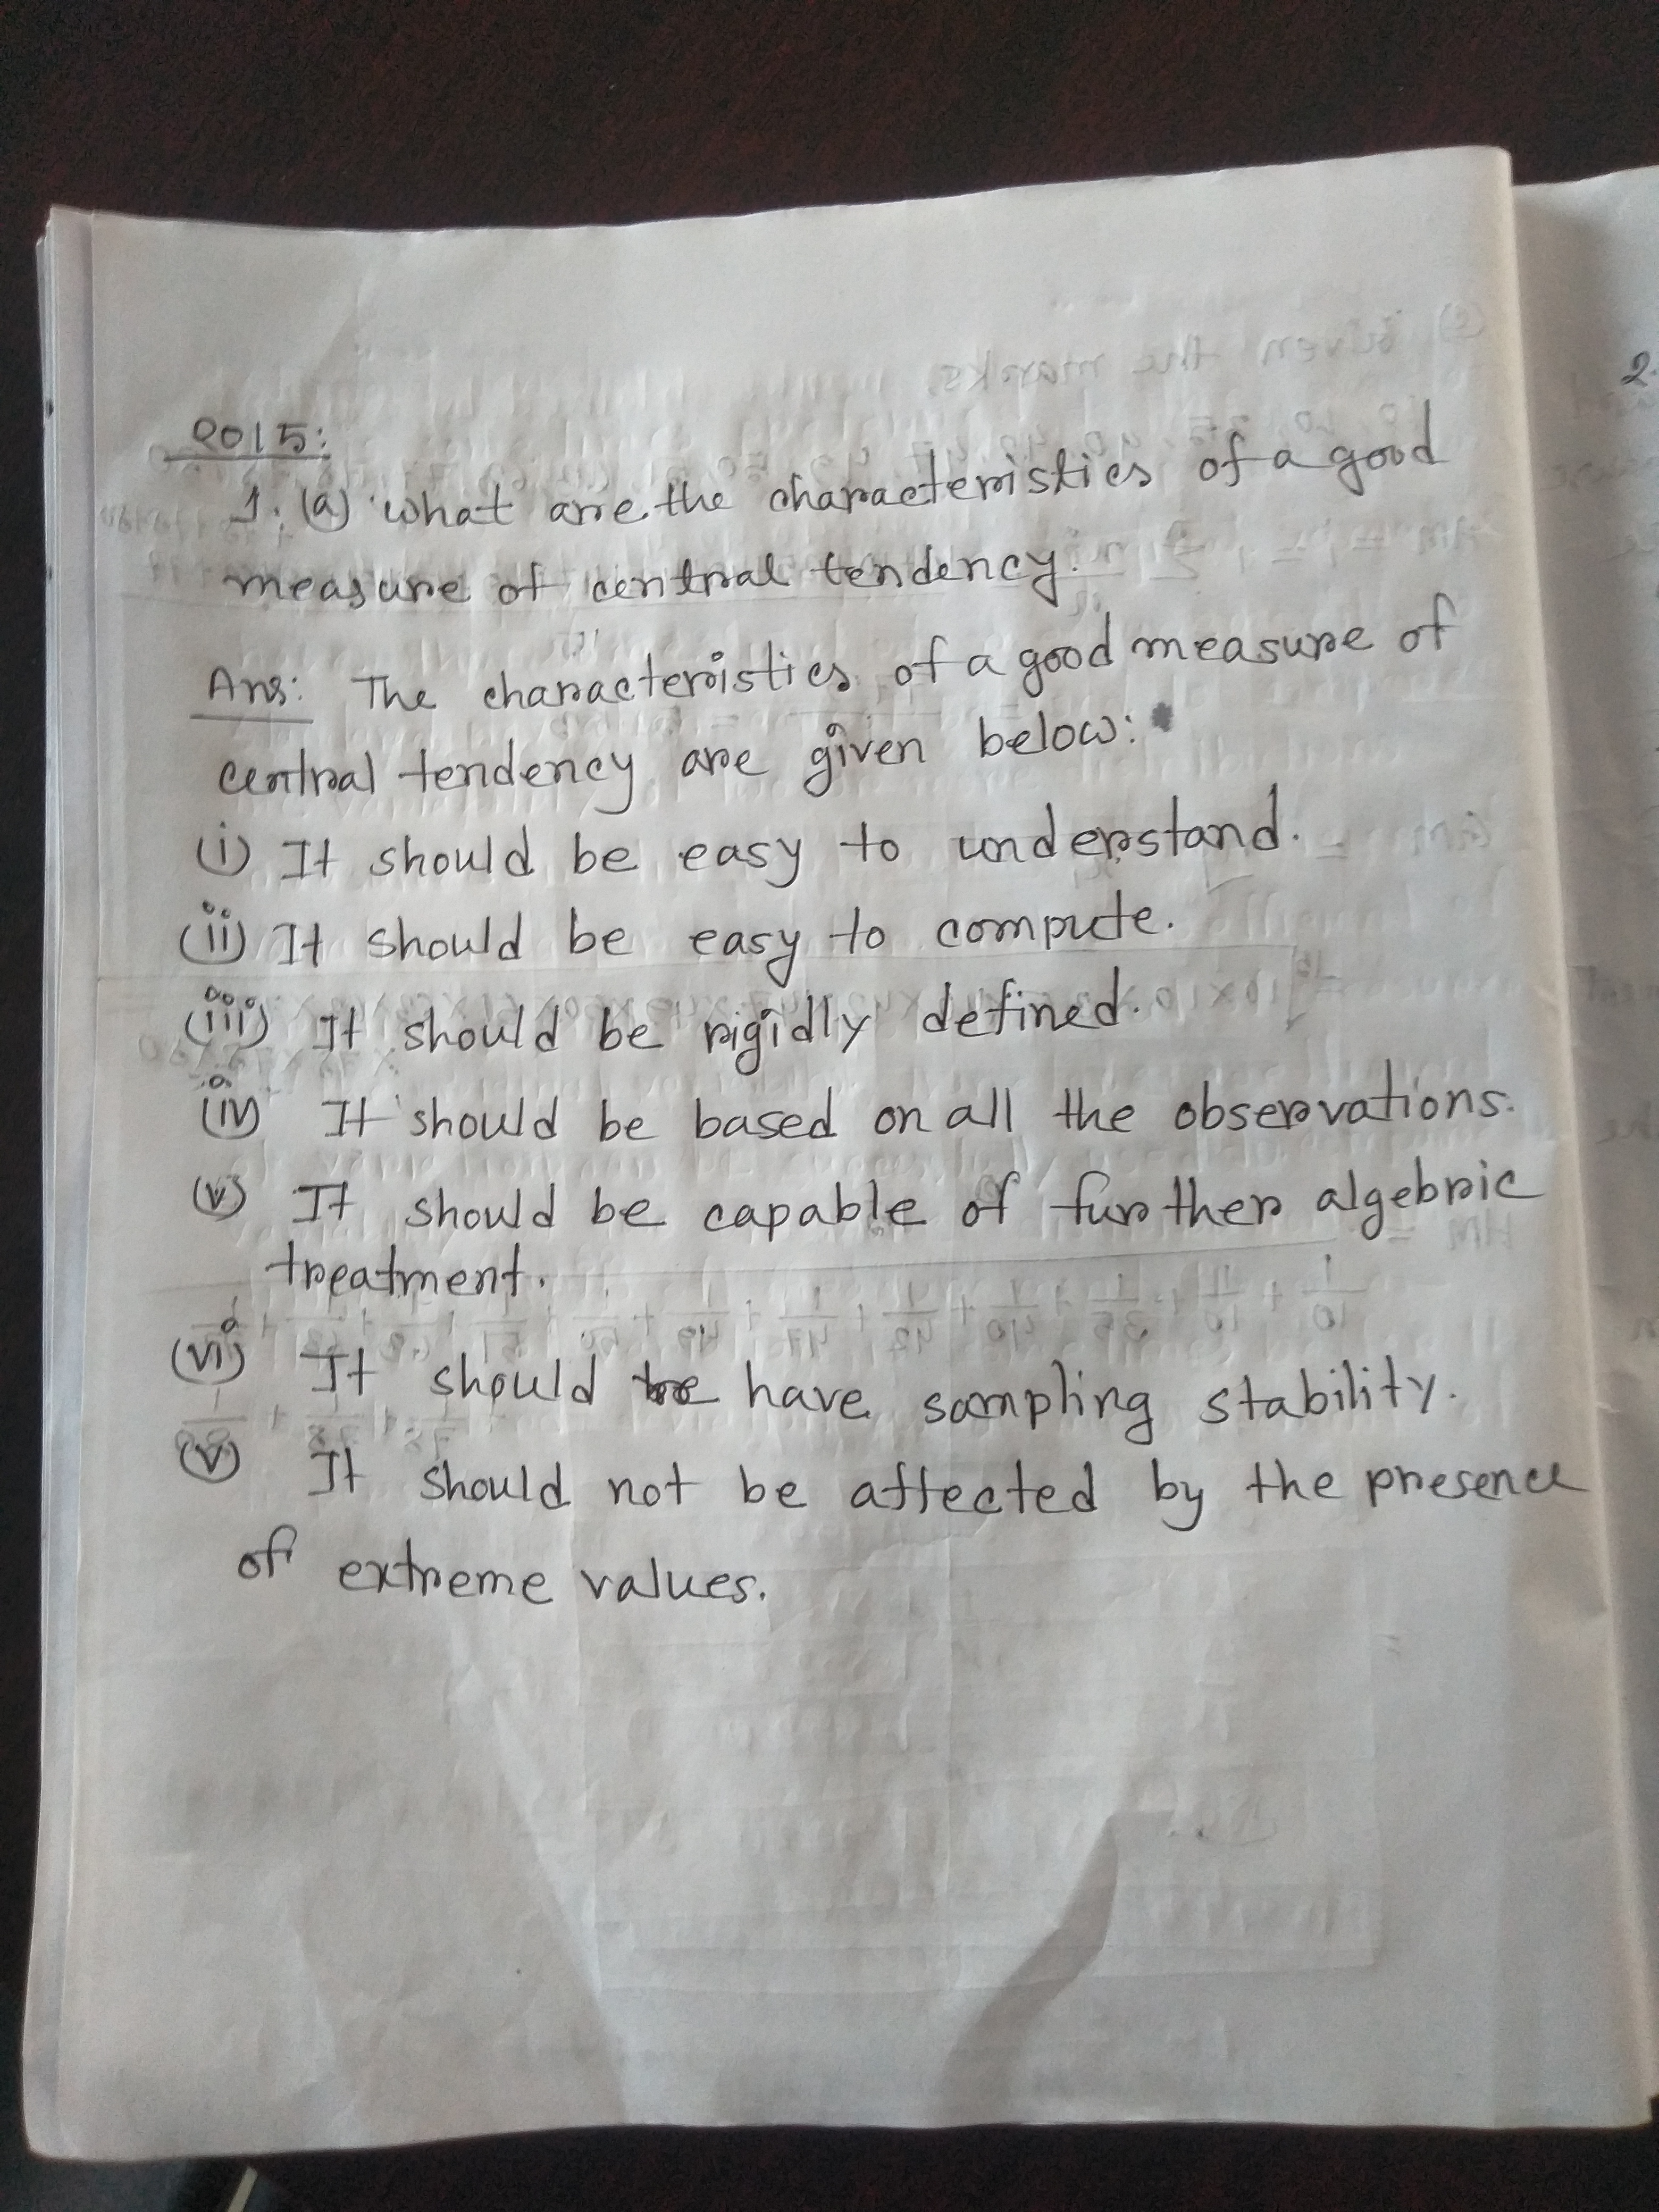 2015:
1. (a) what are the characteristics of a good
measure of central tendency.
Ans: The characteristics of a good measure of
central tendency are given below:
(i) It should be easy to understand.
(ii) It should be easy to compute.
(iii) It should be rigidly defined.
(iv) It should be based on all the observations.
(v) It should be capable of further algebric
treatment.
(vi) It should have sampling stability.
(v) It should not be affected by the presence
of extreme values.
2.